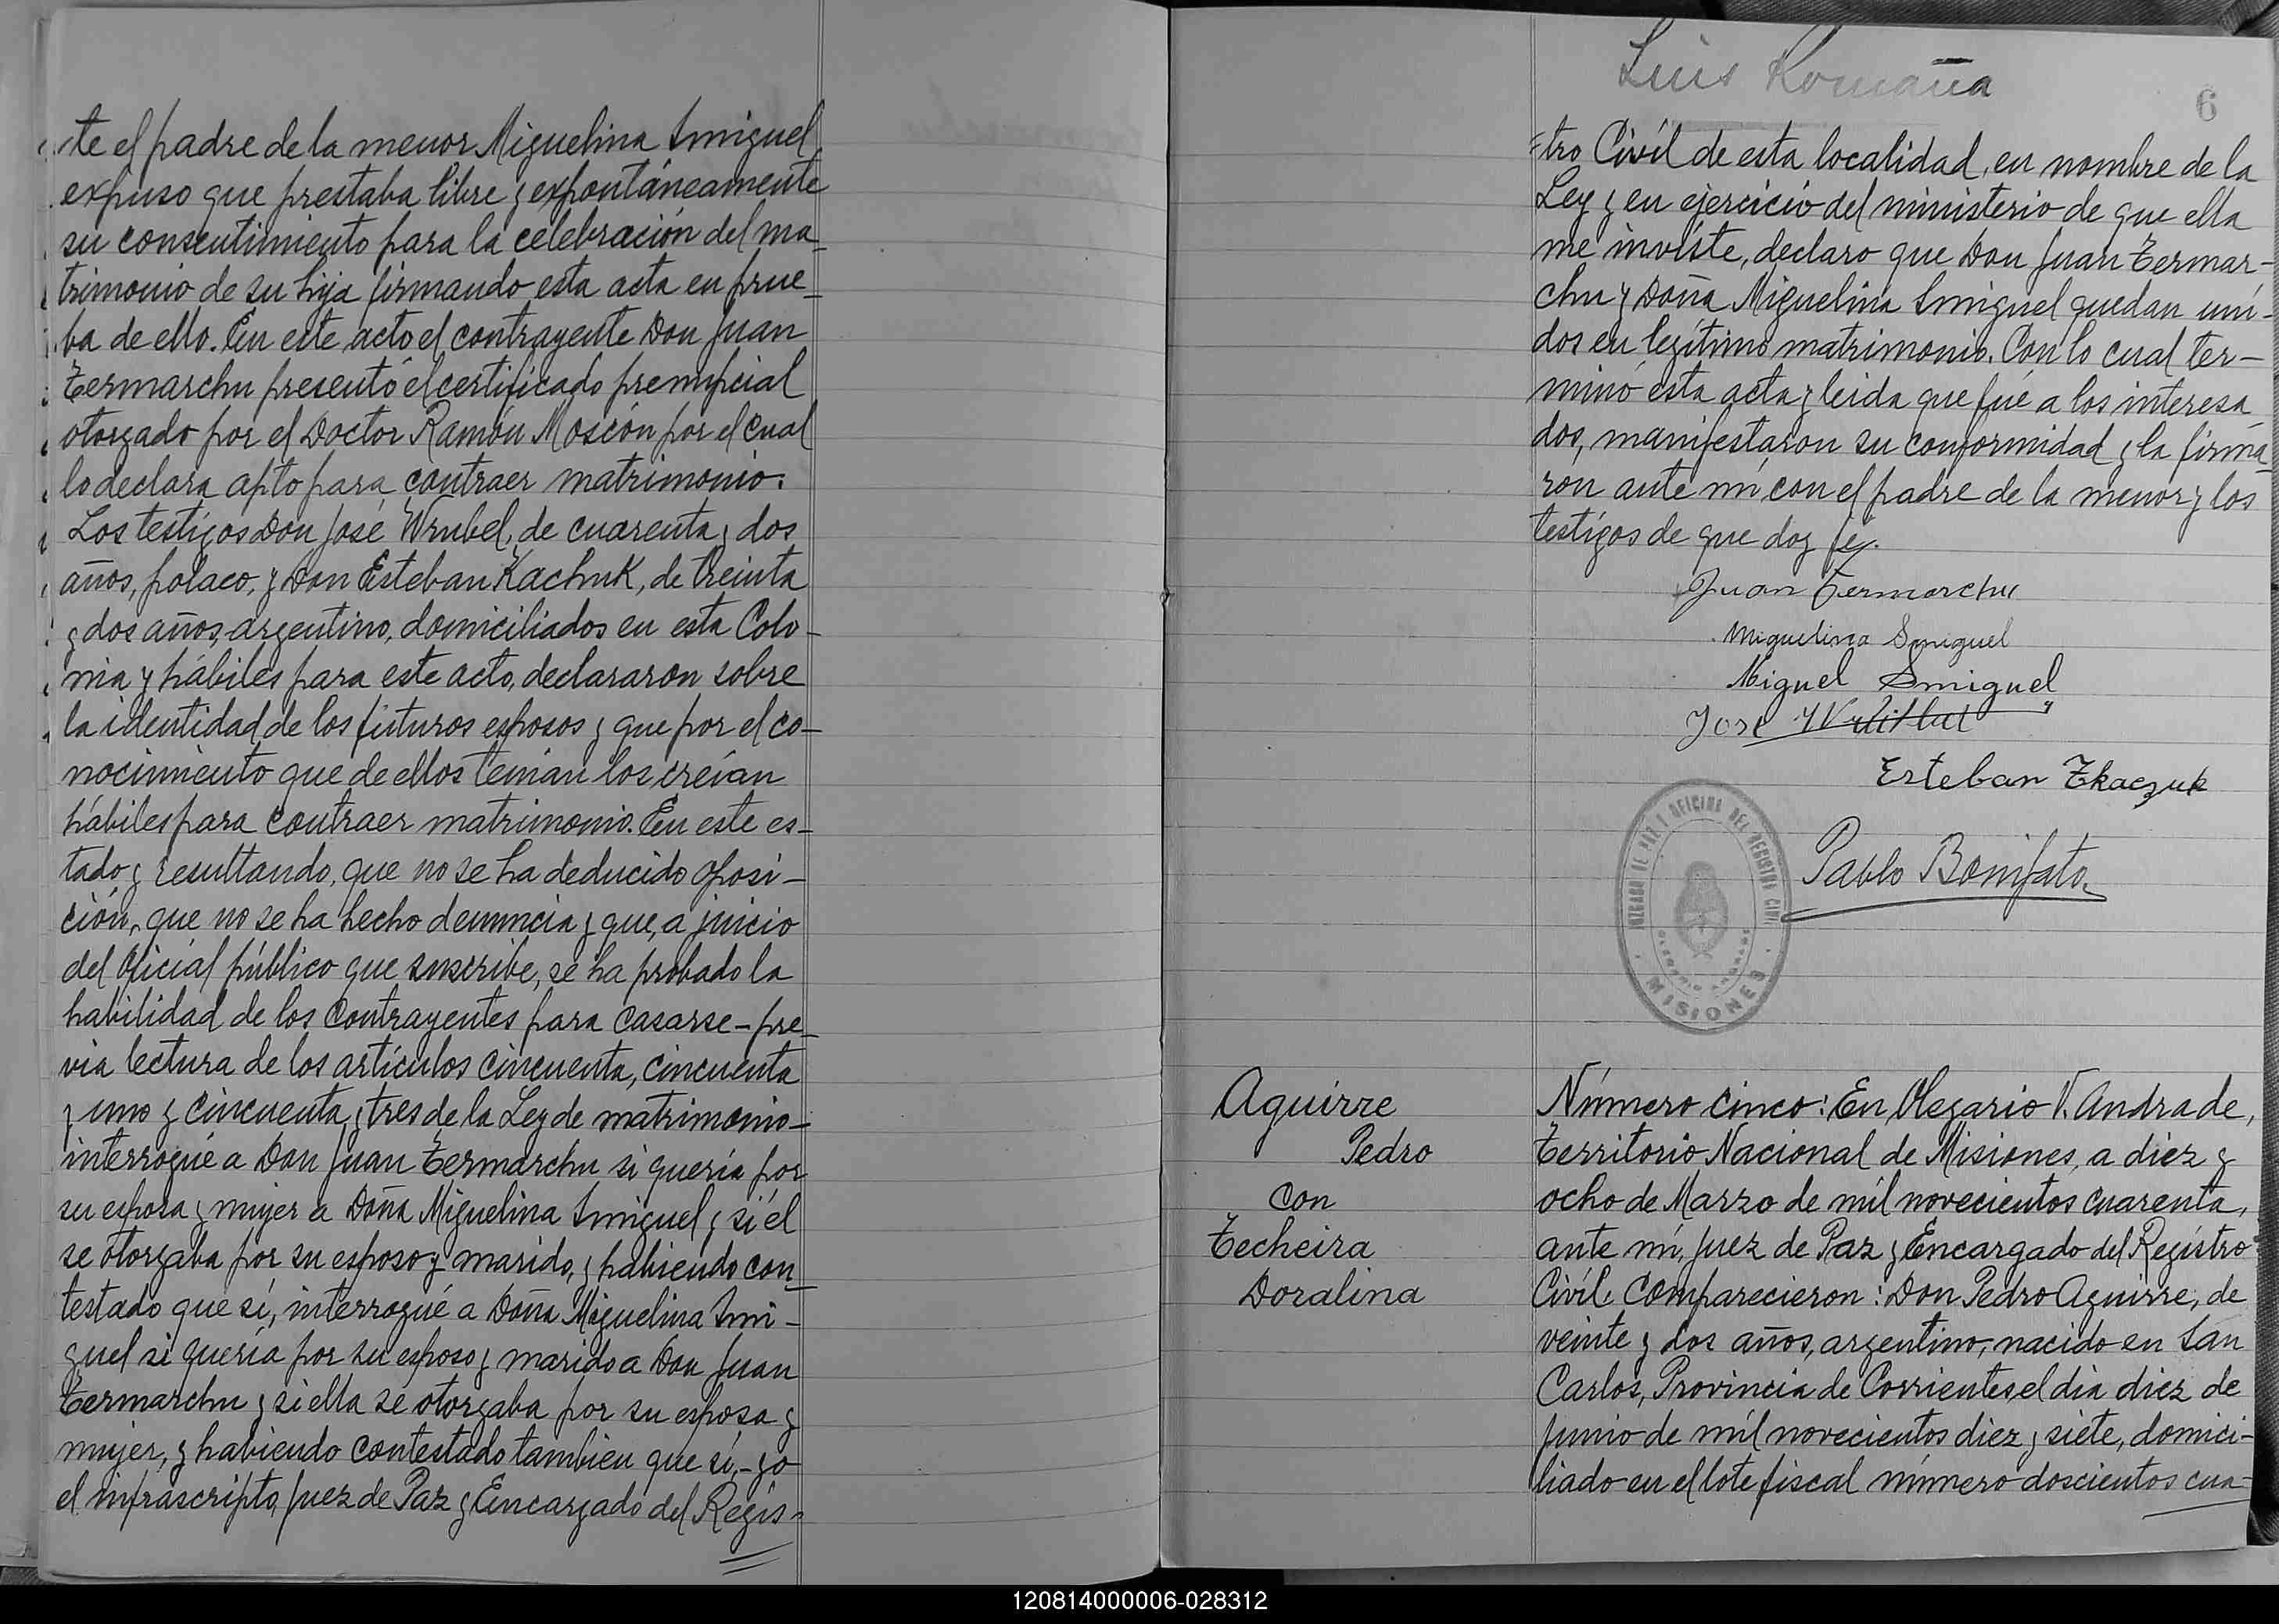 -te el padre de la menor Miguelina Smiguel
expuso que prestaba libre y expontáneamente
su consentimiento para la celebración del ma-
trimonio de su hija firmando esta acta en prue-
ba de ello. En este acto el contrayente Don Juan
Termarchu presentó el certificado prenupcial
otorgado por el Doctor Ramón Moscón por el cual
lo declara apto para contraer matrimonio.
Los testigos Don José Wrubel, de cuarenta y dos
años, polaco, y Don Esteban Kachuk, de treinta
y dos años, argentino, domiciliados en esta Colo-
nia y hábiles para este acto, declararon sobre
la identidad de los futuros esposos y que por el co-
nocimiento que de ellos tenían los creían
hábiles para contraer matrimonio. En este es-
tado y resultando, que no se ha deducido oposi-
ción, que no se ha hecho denuncia y que, a juicio
del oficial público que suscribe, se ha probado la
habilidad de los contrayentes para casarse - pre-
via lectura de los artículos cincuenta, cincuenta
y uno y cincuenta y tres de la Ley de matrimonio-
interrogué a Don Juan Termarchu si quería por
su esposa y mujer a Doña Miguelina Smiguel y si él
se otorgaba por su esposo y marido, y habiendo con-
testado que sí, interrogué a Doña Miguelina Smi-
guel si quería por su esposo y marido a Don Juan
Termarchu y si ella se otorgaba por su esposa y
mujer, y habiendo contestado tambien que sí, - yo
el infrascripto, Juez de Paz y Encargado del Regis-
Luis Romaña
6
-tro Civíl de esta localidad, en nombre de la
Ley y en ejercicio del ministerio de que ella
me invíste, declaro que Don Juan Termar-
chu y Doña Miguelina Smiguel quedan uni-
dos en legítimo matrimonio. Con lo cual ter-
minó esta acta y leida que fué a los interesa
dos, manifestaron su conformidad y la firma-
ron ante mí, con el padre de la menor y los
testígos de que doy fé.
Juan Termarchu
Miguelina Smiguel
Miguel Smiguel
José
Esteban Tkaczuk
Pablo Bonifato
JUZGADO DE PAZ Y OFICINA DEL REGISTRO CIVIL
MISIONES
Aguirre
Pedro
con
Techeira
Doralina
Número cinco: En Olegario V. Andrade,
Territorio Nacional de Misiones, a diez y
ocho de Marzo de mil novecientos cuarenta,
ante mí, Juez de Paz y Encargado del Registro
Civíl, comparecieron: Don Pedro Aguirre, de
veinte y dos años, argentino, nacido en San
Carlos, Provincia de Corrientes, el día diez de
Junio de mil novecientos diez y siete, domici-
liado en el lote fiscal número doscientos cua-
120814000006-028312